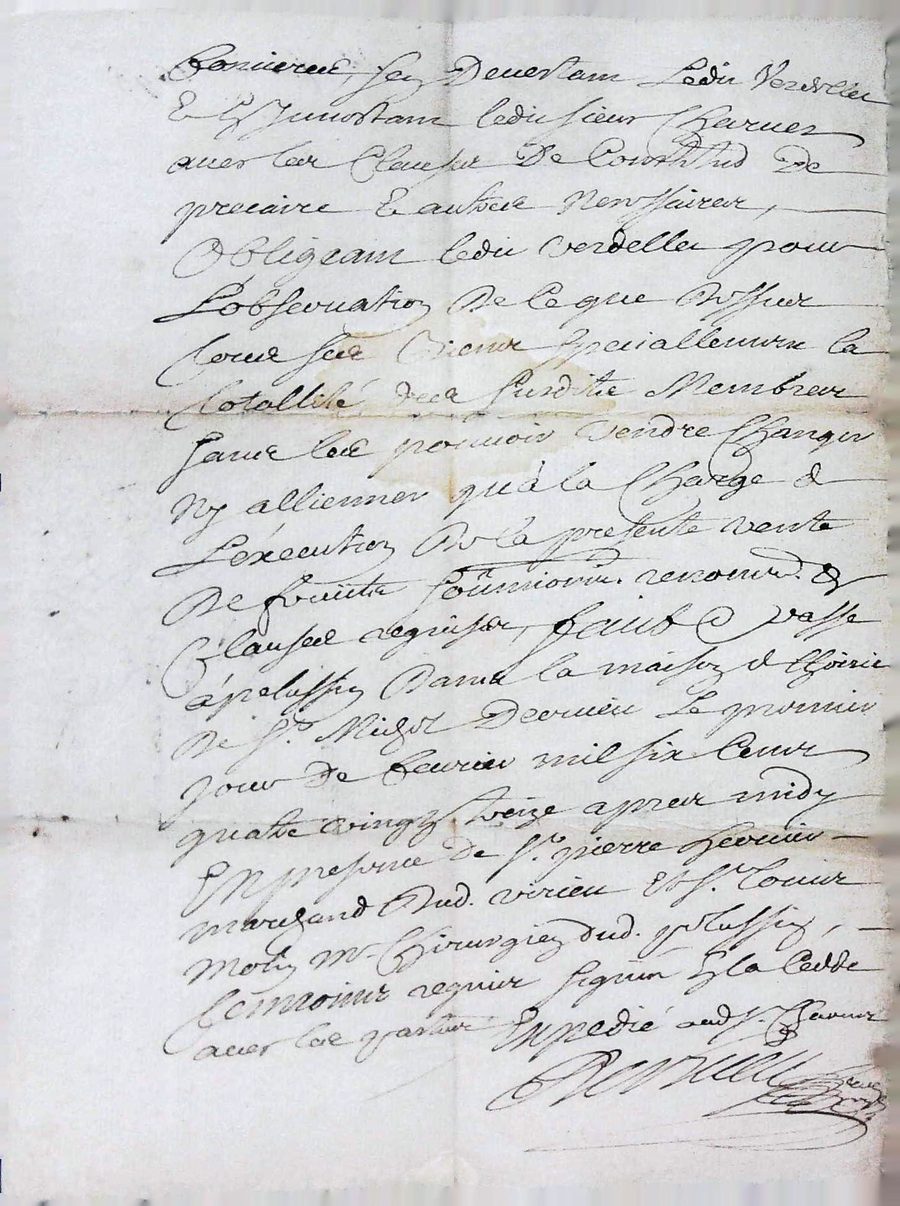 sen Deuestam Ledit Verdellet
Et Inuestam ledit sieur Charuet
auec les Clauses De Constitud De
precaire Et autres Necessaires,
Obligeam ledit Verdellet pour
L'obseruation De Ce que Dessus
Tous ses Biens specialleme la
Totallité des susdits Membres
sans les pouuoir Vendre Changer
Ny allienner qu'à la Charge de
L'execution De la presente vente
De soumissions, renond. &
Clauses requises, faict & passé
à pelussin Dans la maison d
De Sr. Michel Deurieu Le premier
Jour De feurier mil six Cent
quatre vingt treize apres midy
En presence De Sr. pierre
marchand Dud. virieu Et Sr. Louis
Mr. Chirurgien dud. pelussin, -
Temoins requis signés à la Cedde
auec les parties Expedié aud Sr. Charuet